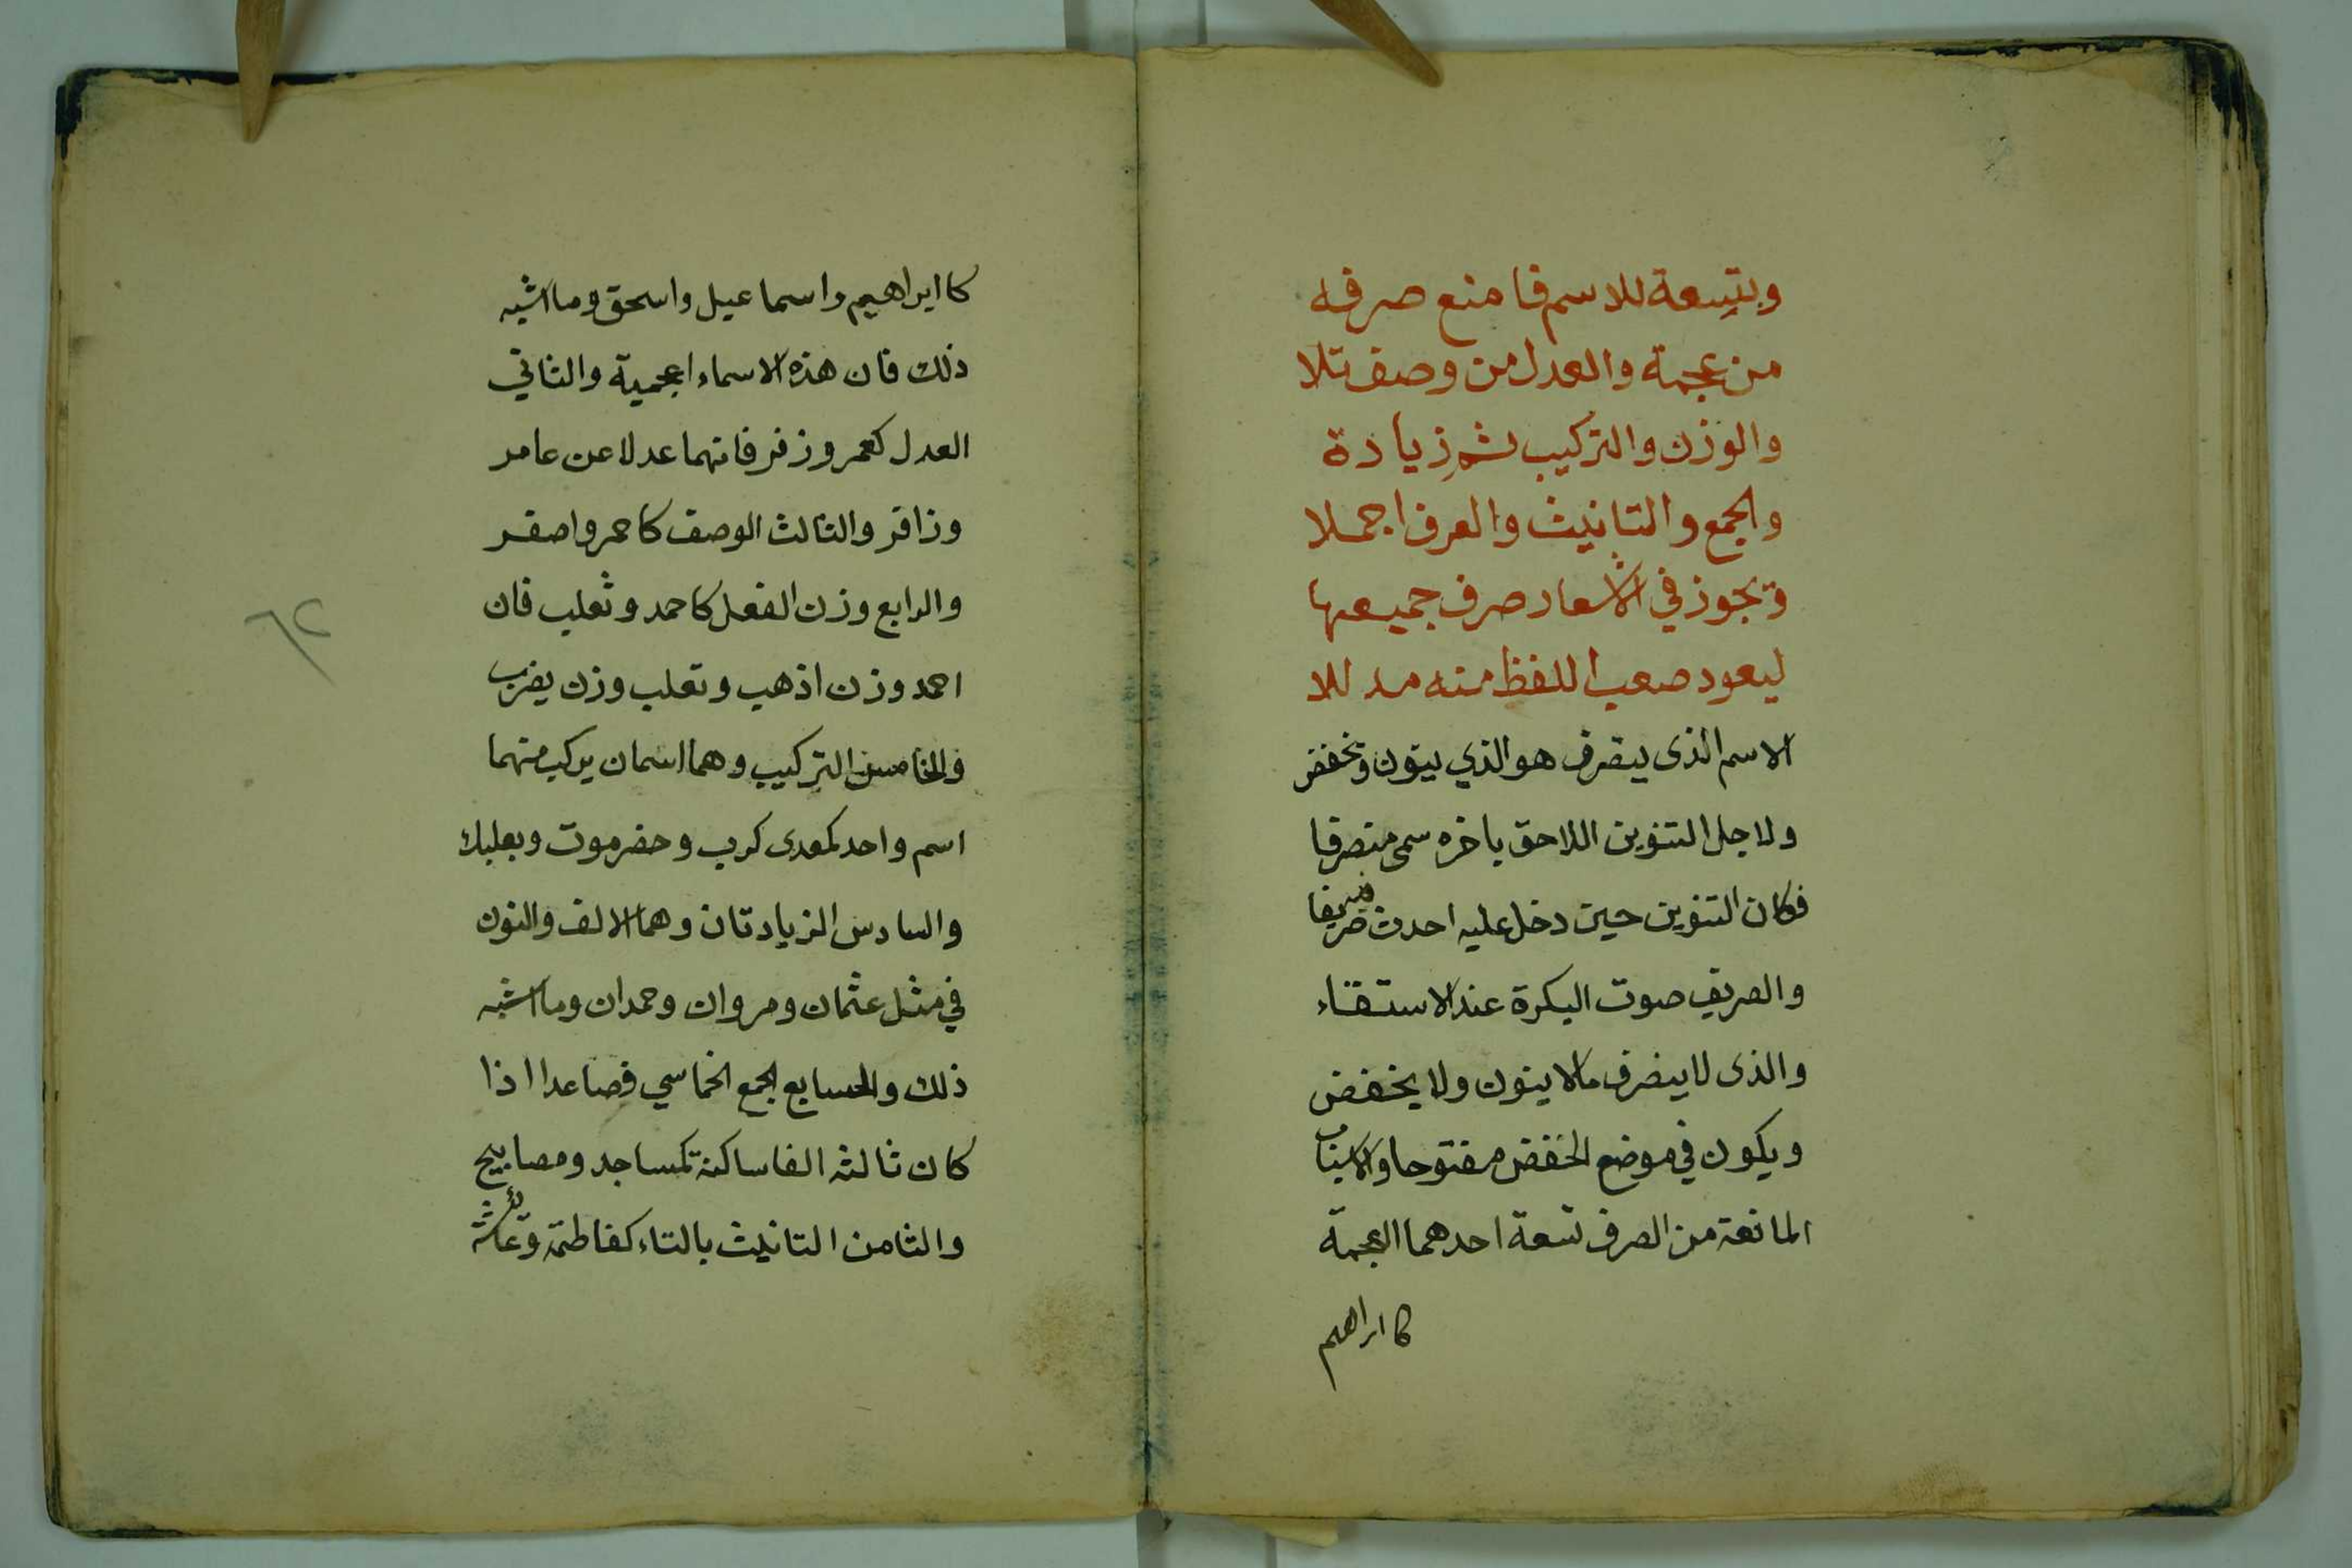 وبتسعة للاسم فامنع صرفه
من عجمة والعدل من وصف تلا
والوزن والتركيب ثم زيادة
والجمع والتانيث والعرف اجملا
ويجوز في الاشعار صرف جميعها
ليعود صعب اللفظ منه مدللا
الاسم الذى ينصرف هو الذي ينون ويخفض
ولاجل التنوين اللاحق باخره سمى منصرفا
فكان التنوين حين دخل عليه احدث صريفا
والصريف صوت البكرة عند الاستقاء
والذى لا ينصرف مالا ينون ولا يخفض
ويكون في موضع الخفض مفتوحا والاسباب
المانعة من الصرف تسعة احدهما العجمة
كا ابراهيم
كا ابراهيم واسماعيل واسحق وما اشبه
ذلك فان هذه الاسماء اعجمية والثاني
العدل كعمر وزفر فانهما عدلا عن عامر
وزافر والثالث الوصف كاحمر واصفر
والرابع وزن الفعل كاحمد وتغلب فان
احمد وزن اذهب وتغلب وزن يضرب
والخامس التركيب وهما اسمان يركب منهما
اسم واحد كمعدى كرب وحضرموت وبعلبك
والسادس الزيادتان وهما الالف والنون
في مثل عثمان ومروان وحمدان وما اشبه
ذلك والسابع الجمع الخماسي فصاعدا اذا
كان ثالثه الفا ساكنة كمساجد ومصابيح
والثامن التانيث بالتاء كفاطمة وعائشة
٦٢